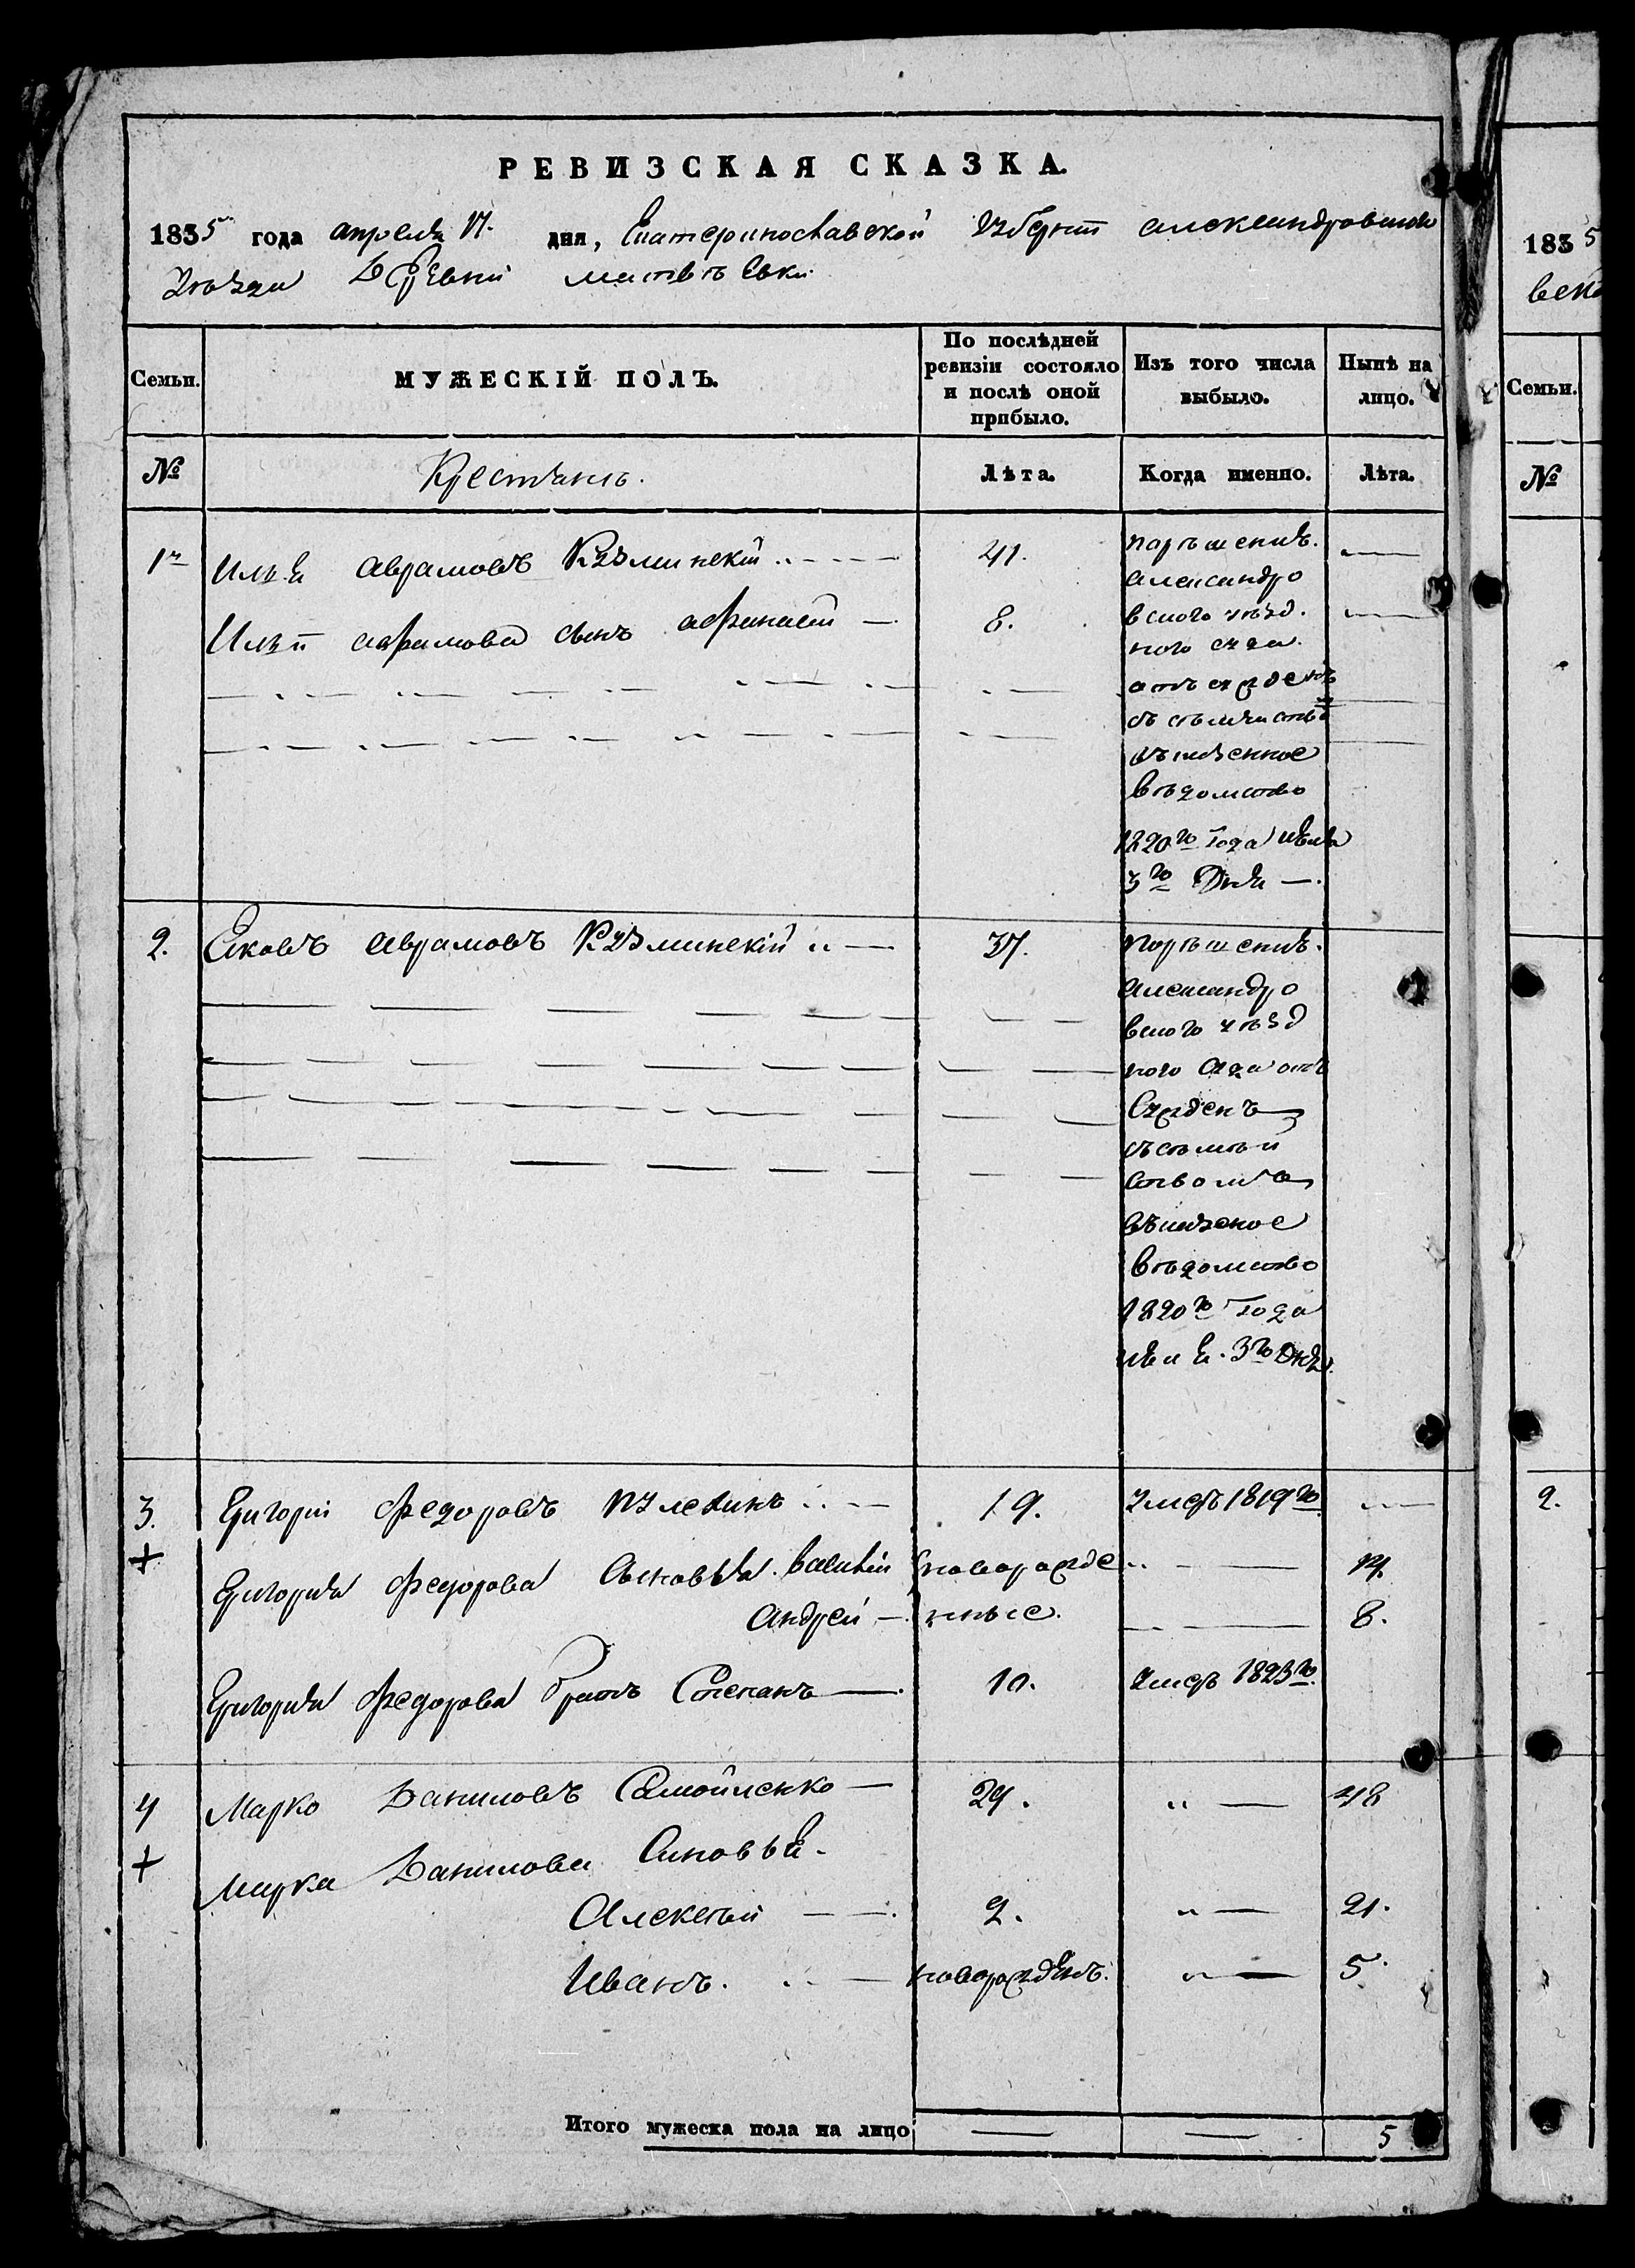 РЕВИЗСКАЯ СКАЗКА.
1835 года апреля 17. дня, Екатеринославской Губерніи Александровскаго
Уѣзда Деревни Матвѣевки
Семьи.
МУЖЕСКІЙ ПОЛЪ.
По послѣдней ревизіи состояло и послѣ оной прибыло.
Изъ того числа выбыло.
Нынѣ на лицо.
№
Крестьянъ.
Лѣта.
Когда именно.
Лѣта.
1й
Илья Аврамовъ Кузминскій
41.
порѣшенію
Александро
вского уѣзд.
ного суда
отъ сужденъ
съ семѣйство
въ казенное
вѣдомство
1820го Года июля
3го Дня —.
Ильи аврамова сынъ афанасій —
8.
2.
Яковъ Аврамовъ Кузминскій
37.
порѣшенію
Александро
вского уѣзд
ного Суда отъ
Сужденъ
съ семѣй
ством
въ казеное
вѣдомство
1820го Года
июля 3го Дня.
3.
Григорій Федоровъ
19.
умеръ 1819го
+
Григорія Федорова Сыновья Василій
новорожде
14.
Андрей —
нные.
8.
Григорія Федорова братъ Степанъ —
10.
Умеръ 1823го
4
Марко Даниловъ Самойленко —
29.
48
+
Марка Данилова Синовья.
Алексѣй
2.
21.
Иванъ.
новорожденъ.
5
Итого мужеска пола на лицо
5
1835
веки
Семьи.
№
2.